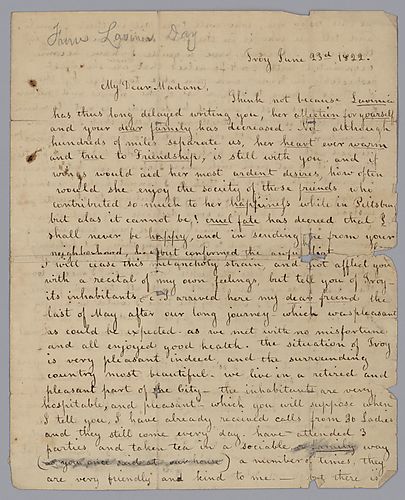 From Lavinia Day
Troy June 23d 1822.
My Dear Madame,
Think not because Lavinia
has thus long delayed writing you, her affection for yourself
and your dear family has decreased. No although
hundreds of miles separate us, her heart ever warm
and true to Friendship, is still with you and if
wings would aid her most ardent desires, how often
would she enjoy the society of those friends who
contributed so much to her happiness while in Pittsburg
but alas it cannot be, cruel fate has decreed that I
shall never be happy, and in sending me from your
neighborhood, but confirmed the
I will cease this melancholy strain and not afflict you
with a recital of my own feelings, but tell you of Troy
its inhabitants &c I arrived here my dear friend the
last of May after our long journey which was pleasant
as could be expected as we met with no misfortune
and all enjoyed good health. the situation of Troy
is very pleasant indeed and the surrounding
country most beautiful. we live in a retired and
pleasant part of the City - the inhabitants are very
hospitable, and pleasant - which you will suppose when
I tell you, I have already received calls from 30 Ladies
and they still come every day, have attended 3
parties and taken tea in a sociable, way
a number of times, they
are very friendly and kind to me. - but there is